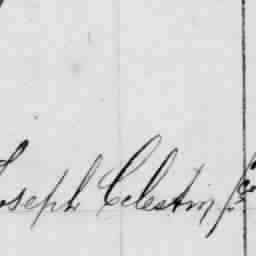 Joseph Celestin